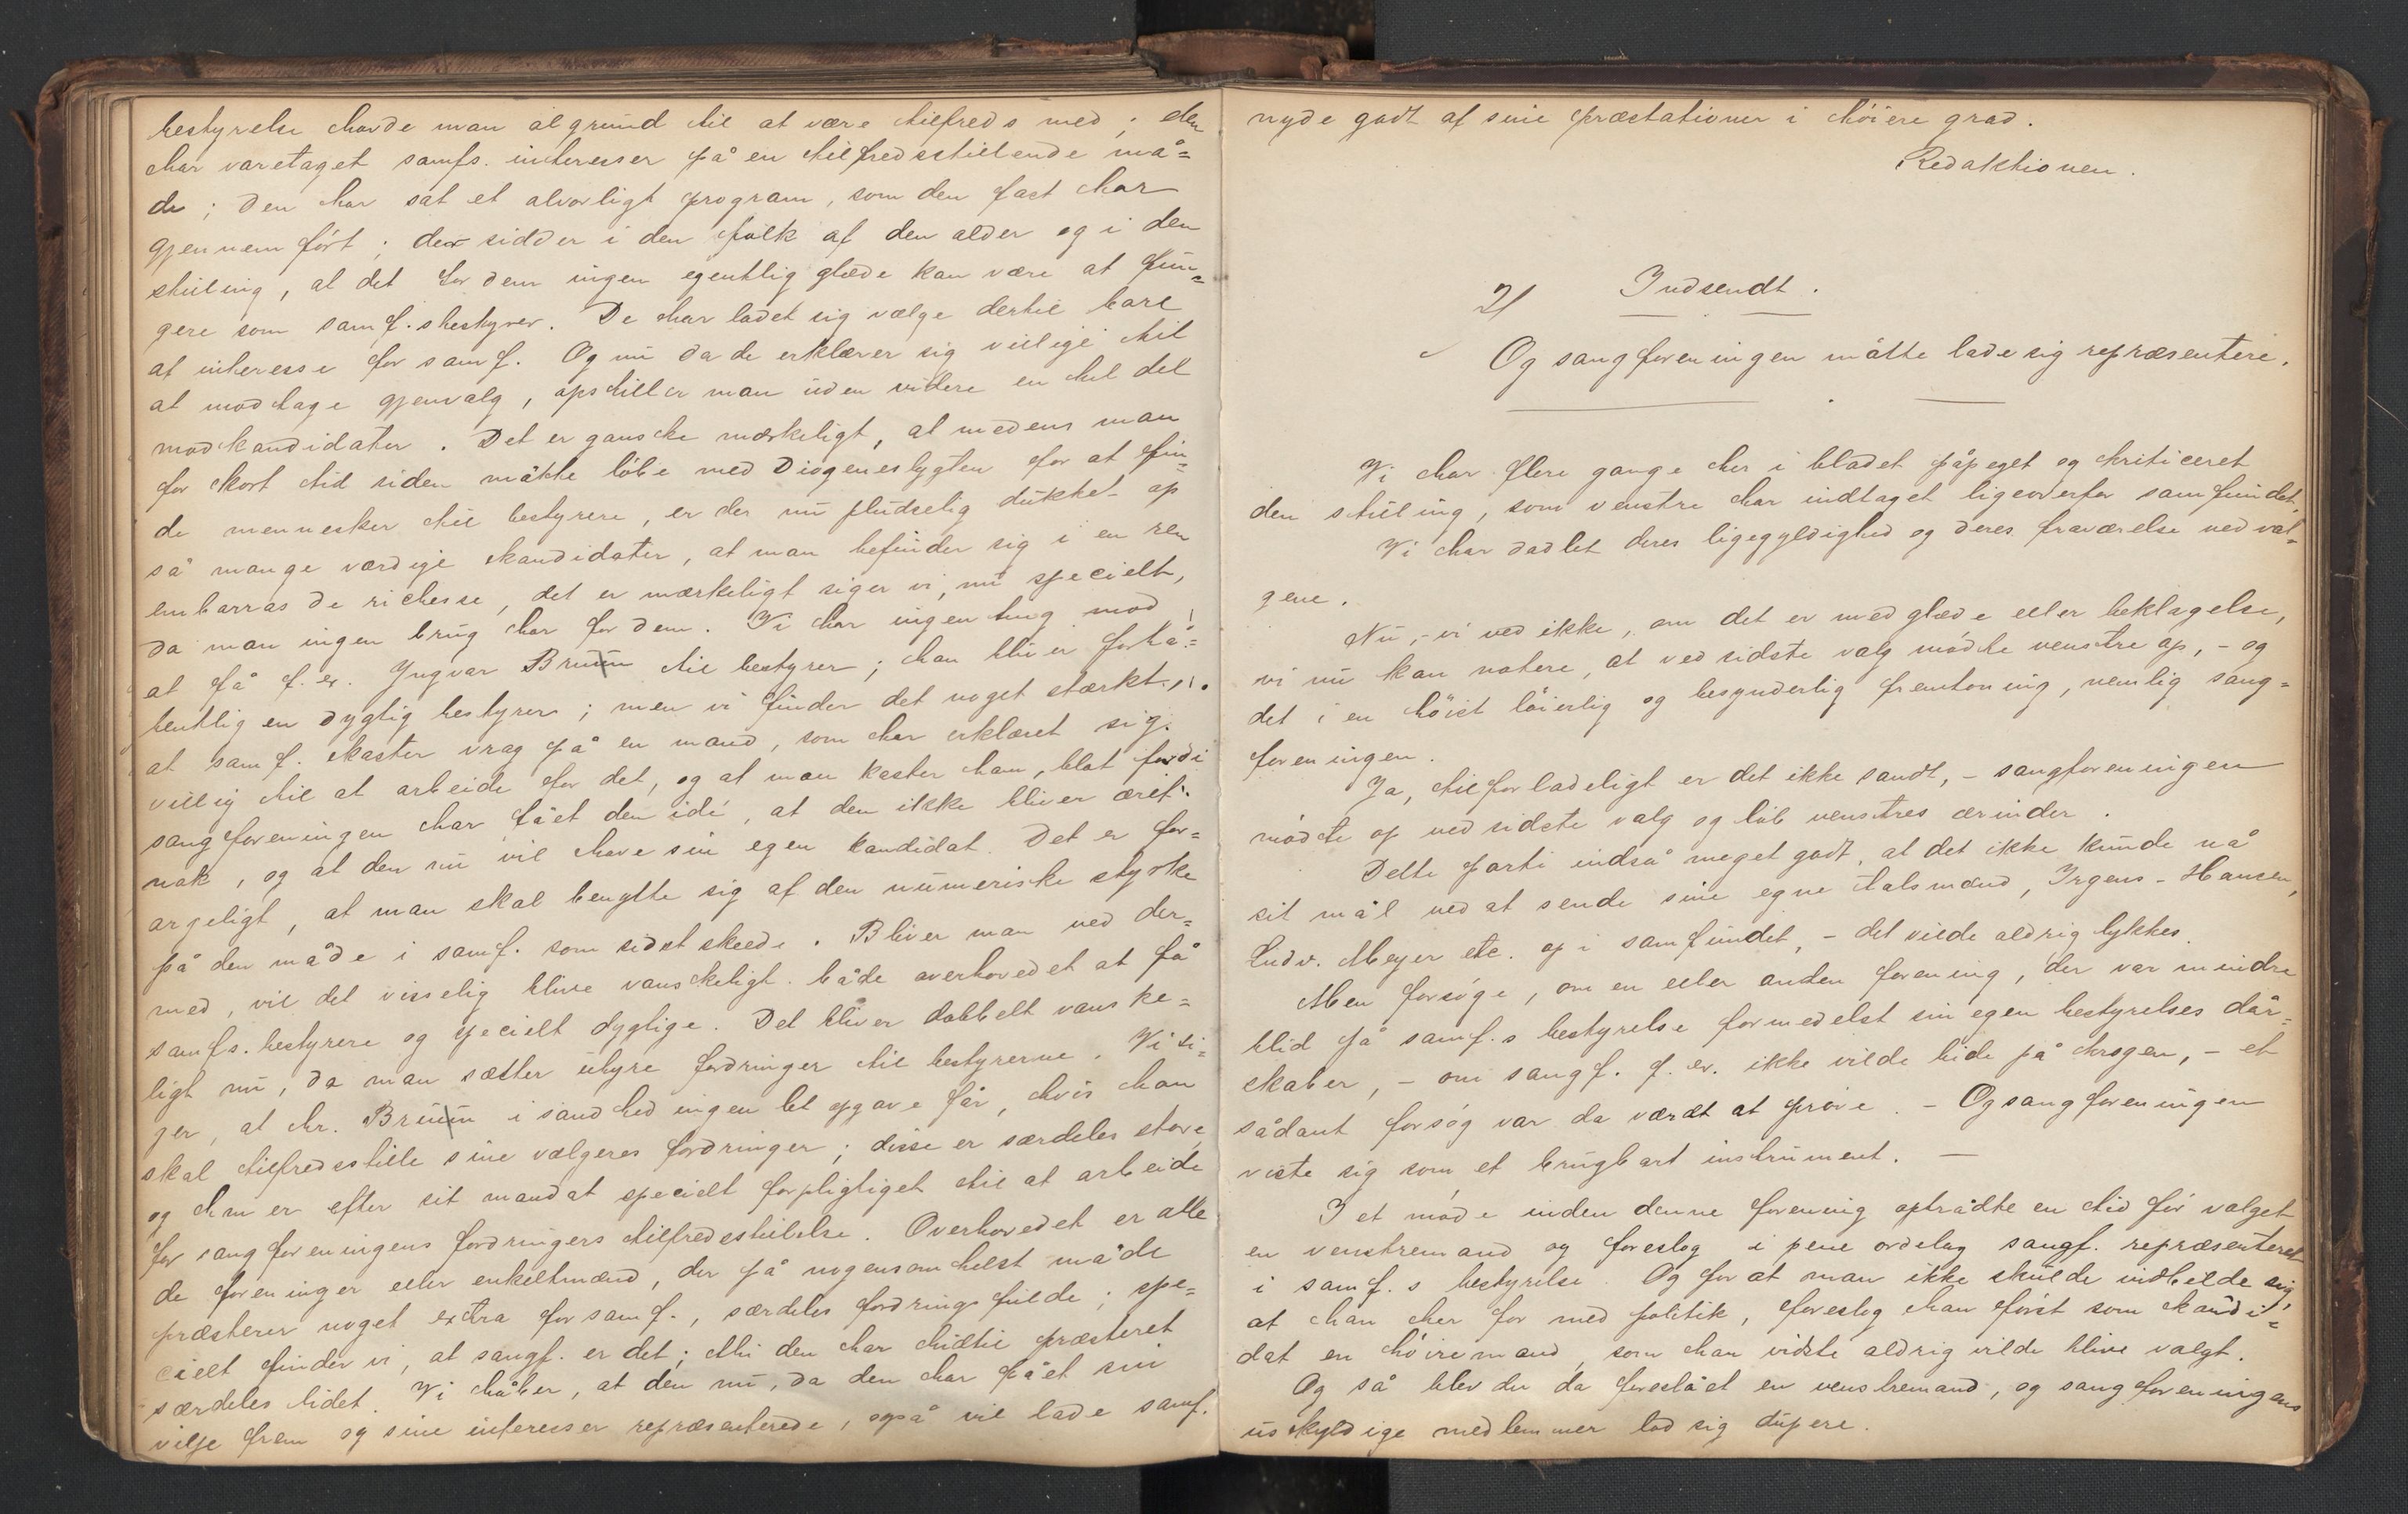 bestyrelse havde man al grund til at være tilfreds med; den
har varetaget samfs. interesser på en tilfredsstillende må=
de; den har sat et alvorligt program, som den fast har
gjennemført; der sidder i den folk af den alder og i den
stilling, at det for dem ingen egentlig glæde kan være at fun=
gere som samf.s bestyrer. De har ladet sig vælge dertil bare
af interesse for samf. Og nu da de erklærer sig villige til
at modtage gjenvalg, opstiller man uden videre en hel del
modkandidater. Det er ganske mærkeligt, at medens man
for kort tid siden måtte løbe med Diogeneslygten for at fin=
de mennesker til bestyrere, er der nu pludselig dukket op
så mange værdige kandidater, at man befinder sig i en ren
embarras de richesse, det er mærkeligt siger vi, nu specielt,
da man ingen brug har for dem. Vi har ingenting mod
at få f. ex. Yngvar Bruun til bestyrer; han bliver forhå=
bentlig en dygtig bestyrer; men vi finder det noget stærkt,
at samf. kaster vrag på en mand, som har erklæret sig
villig til at arbeide for det, og at man kaster ham, blot fordi
sangforeningen har fået den idé, at den ikke bliver æret
nok, og at den nu vil have sin egen kandidat. Det er for=
argeligt, at man skal benytte sig af den numeriske styrke
på den måde i samf. som sidst skede. Bliver man ved der=
med, vil det visselig blive vanskeligt både overhovedet at få
samfs. bestyrere og specielt dygtige. Det bliver dobbelt vanske=
ligt nu, da man sætter uhyre fordringer til bestyrerne. Vi si=
ger, at hr. Bruun i sandhed ingen let opgave får, hvis han
skal tilfredsstille sine vælgeres fordringer; disse er særdeles store,
og han er efter sit mandat specielt forpligtiget til at arbeide
for sangforeningens fordringers tilfredsstillelse. Overhovedet er alle
de foreninger eller enkeltmænd, der på nogensomhelst måde
præsterer noget extra for samf., særdeles fordringsfulde; spe=
cielt finder vi, at sangf. er det; thi den har hidtil præsteret
særdeles lidet. Vi håber, at den nu, da den har fået sin
vilje frem og sine interesser repræsenterede, også vil lade samf.
nyde godt af sine præstationer i høiere grad.
Redaktionen.
2/ Indsendt.
Og sangforeningen måtte lade sig repræsentere.
Vi har flere gange her i bladet påpeget og kriticeret
den stilling, som venstre har indtaget ligeoverfor samfundet,
Vi har dadlet deres ligegyldighed og deres fraværelse ved val=
gene.
Nu, - vi ved ikke, om det er med glæde eller beklagelse,
vi nu kan notere, at ved sidste valg mødte venstre op, - og
det i en høist løierlig og besynderlig fremtoning, nemlig sang=
foreningen.
Ja, tilforladeligt er det ikke sandt, - sangforeningen
mødte op ved sidste valg og løb venstres ærinder.
Dette parti indså meget godt, at det ikke kunde nå
sit mål ved at sende sine egne talsmænd, Irgens-Hansen,
Ludv. Meyer etc. op i samfundet, - det vilde aldrig lykkes.
Men forsøge, om en eller anden forening, der var mindre
blid på samf.s bestyrelse formedelst sin egen bestyrelses dår=
skaber, - om sangf. f. ex. ikke vilde bide på krogen, - et
sådant forsøg var da værdt at prøve. - Og sangforeningen
viste sig som et brugbart instrument. —
I et møde inden denne forening optrådte en tid før valget
en venstremand og foreslog i pene ordelag sangf. repræsenteret
i samf.s bestyrelse. Og for at man ikke skulde indbilde sig,
at han her for med politik, foreslog han først som kandi=
dat en høiremand, som han vidste aldrig vilde blive valgt.
Og så blev der da foreslået en venstremand, og sangforeningens
uskyldige medlemmer lod sig dupere.